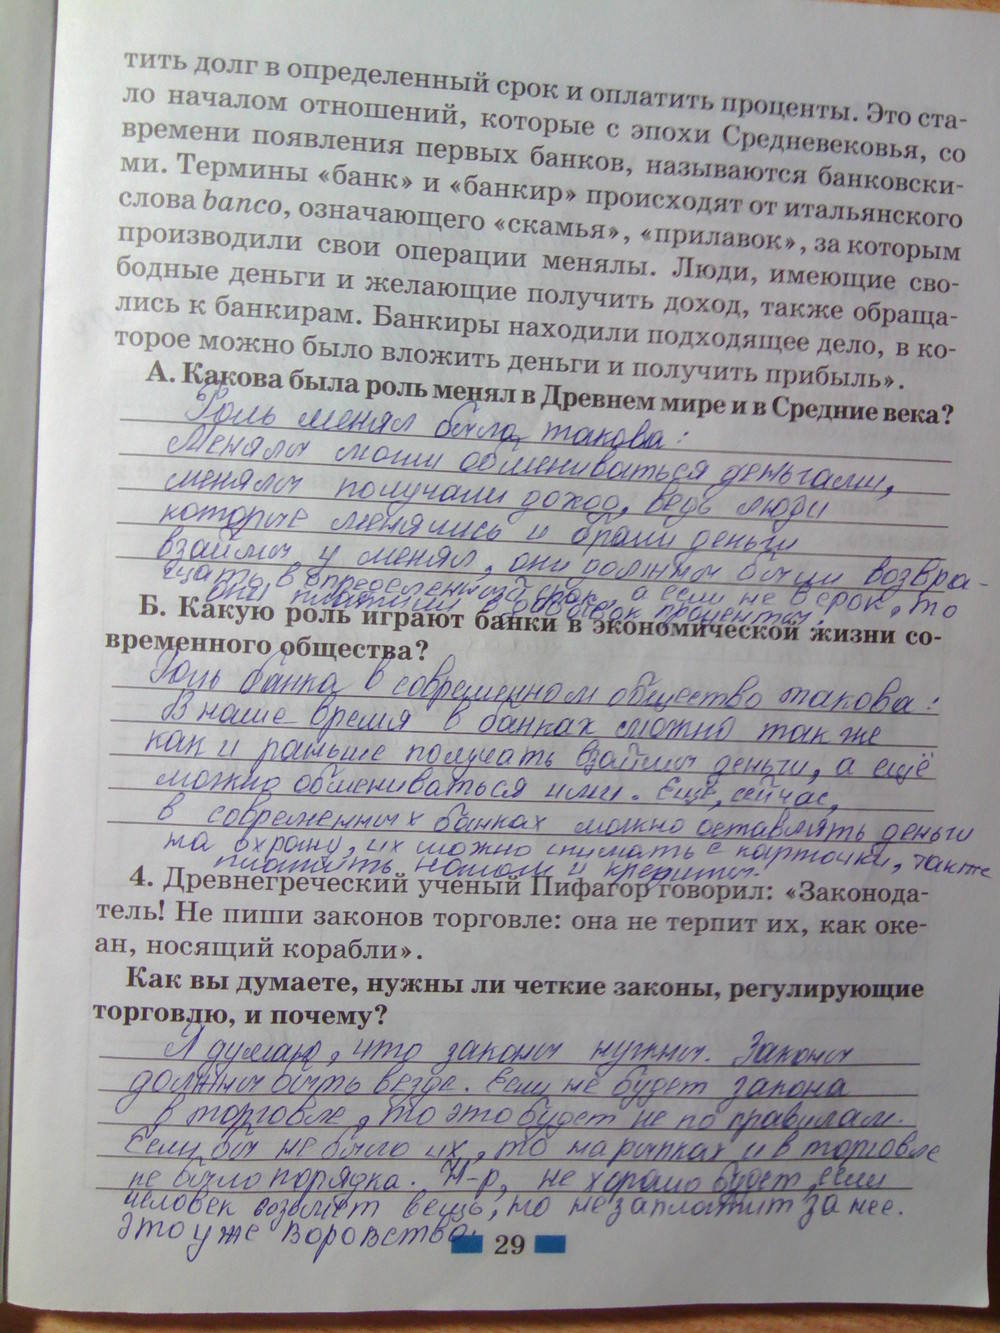 тить долг в определенный срок и оплатить проценты. Это ста-
ло началом отношений, которые с эпохи Средневековья, со
времени появления первых банков, называются банковски-
ми. Термины «банк» и «банкир» происходят от итальянского
слова banco, означающего «скамья», «прилавок», за которым
производили свои операции менялы. Люди, имеющие сво-
бодные деньги и желающие получить доход, также обраща-
лись к банкирам. Банкиры находили подходящее дело, в ко-
торое можно было вложить деньги и получить прибыль».
А. Какова была роль менял в Древнем мире и в Средние века?
Роль менял была такова:
Менялы могли обмениваться деньгами,
менялы получали доход, ведь люди
которые менялись и брали деньги
взаймы у менял, они должны были возвра-
щать в определенный срок, а если не в срок, то
они платили в добавок проценты.
Б. Какую роль играют банки в экономической жизни со-
временного общества?
Роль банка в современном общество такова:
В наше время в банках можно также
как и раньше получать взаймы деньги, а ещё
можно обмениваться ими. Ещё, сейчас,
в современных банках можно оставлять деньги
на охрану, их можно снимать с карточки, также
платить налоги и кредиты.
4. Древнегреческий ученый Пифагор говорил: «Законода-
тель! Не пиши законов торговле: она не терпит их, как оке-
ан, носящий корабли».
Как вы думаете, нужны ли четкие законы, регулирующие
торговлю, и почему?
Я думаю, что законы нужны. Законы
должны быть везде. Если не будет закона
в торговле, то это будет не по правилам.
Если бы не было их, то на рынках и в торговле
не было порядка. Н-р, не хорошо будет, если
человек возьмет вещь, но не заплатит за нее.
Это уже воровство.
29